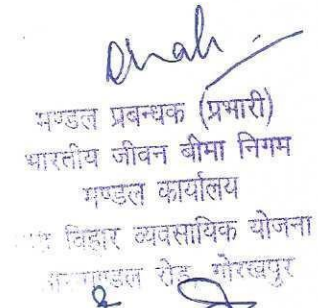 मण्डल प्रबन्धक (प्रभारी)
भारतीय जीवन बीमा निगम
मण्डल कार्यालय
विहार व्यवसायिक योजना
रोड, गोरखपुर